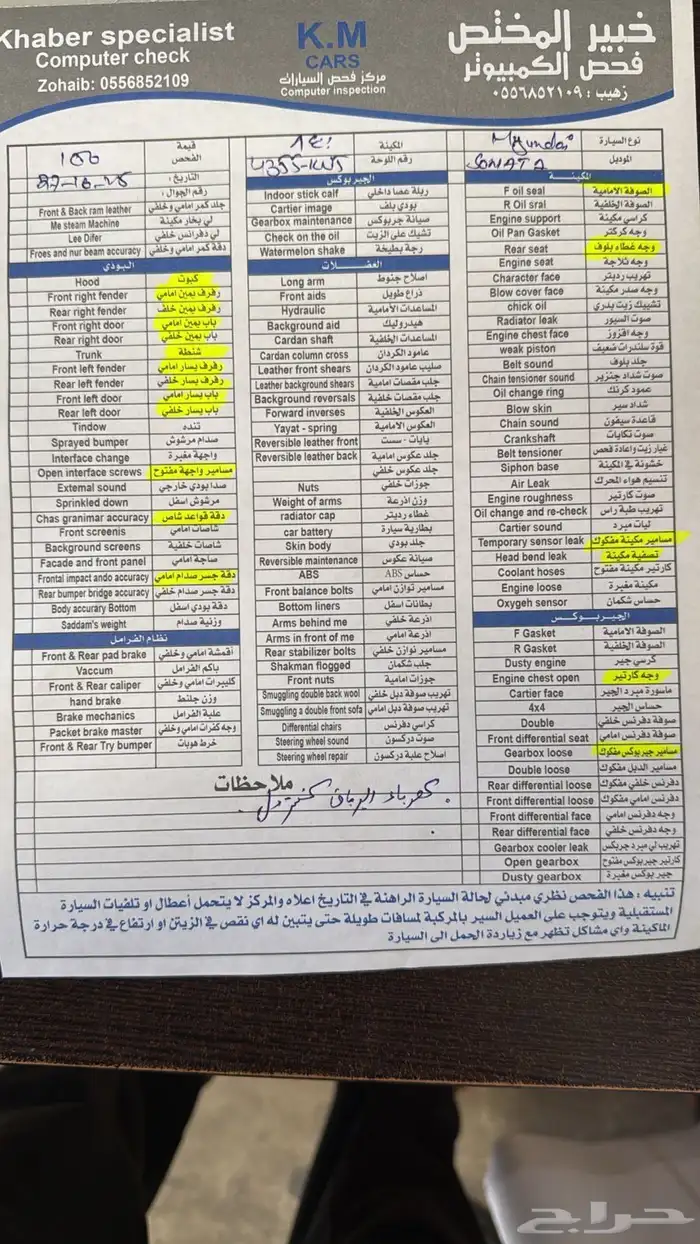 Khaber specialist
Computer check
Zohaib: 0556852109
K.M
CARS
مركز فحص السيارات
Computer inspection
خبير المختص
فحص الكمبيوتر
زهيب : ٠٥٥٦٨٥٢١٠٩
نوع السيارة Hyundai
الموديل SONATA
المكينة
رقم اللوحة
قيمة الفحص 100
التاريخ :
رقم الجوال :
Front & Back ram leather جلد كمر امامي وخلفي
Me steam Machine لي بخار مكينة
Lee Difer لي دفرانس خلفي
Froes and nur beam accuracy دقة كمر امامي وخلفي
البودي
Hood كبوت
Front right fender رفرف يمين امامي
Rear right fender رفرف يمين خلف
Front right door باب يمين امامي
Rear right door باب يمين خلفي
Trunk شنطة
Front left fender رفرف يسار امامي
Rear left fender رفرف يسار خلفي
Front left door باب يسار امامي
Rear left door باب يسار خلفي
Tindow تنده
Sprayed bumper صدام مرشوش
Interface change واجهة مغيرة
Open interface screws مسامير واجهة مفتوح
External sound صدا بودي خارجي
Sprinkled down مرشوش اسفل
Chas granimar accuracy دقة قواعد شاص
Front screenis شاصات امامي
Background screens شاصات خلفية
Facade and front panel صاجة امامي
Frontal impact ando accuracy دقة جسر صدام امامي
Rear bumper bridge accuracy دقة جسر صدام خلفي
Body accuracy Bottom دقة بودي اسفل
Saddam's weight وزنية صدام
نظام الفرامل
Front & Rear pad brake أقمشة امامي وخلفي
Vaccum باكم الفرامل
Front & Rear caliper كليبرات امامي وخلفي
hand brake وزن جلنط
Brake mechanics علبة الفرامل
Packet brake master وجه كفرات امامي وخلفي
Front & Rear Try bumper خرط هوبات
الجيربوكس
Indoor stick calf ربلة عصا داخلي
Cartier image بودي بلف
Gearbox maintenance صيانة جربوكس
Check on the oil تشيك على الزيت
Watermelon shake رجة بطيخة
العفشات
Long arm اصلاح جنوط
Front aids ذراع طويل
Hydraulic المساعدات الامامية
Background aid هيدروليك
Cardan shaft المساعدات الخلفية
Cardan column cross عامود الكردان
Leather front shears صليب عامود الكردان
Leather background shears جلب مقصات امامية
Background reversals جلب مقصات خلفية
Forward inverses العكوس الخلفية
Yayat - spring العكوس الامامية
Reversible leather front يايات - سست
Reversible leather back جلد عكوس امامية
جلد عكوس خلفي
Nuts جوزات خلفي
Weight of arms وزن اذرعة
radiator cap غطاء رديتر
car battery بطارية سيارة
Skin body جلد بودي
Reversible maintenance صيانة عكوس
ABS حساس ABS
Front balance bolts مسامير توازن امامي
Bottom liners بطانات اسفل
Arms behind me اذرعة خلفي
Arms in front of me اذرعة امامي
Rear stabilizer bolts مسامير توازن خلفي
Shakman flogged جلب شكمان
Front nuts جوزات امامية
Smuggling double back wool تهريب صوفة دبل خلفي
Smuggling a double front sofa تهريب صوفة دبل امامي
Differential chairs كراسي دفرنس
Steering wheel sound صوت دركسون
Steering wheel repair اصلاح علبة دركسون
المكينـة
F oil seal الصوفة الامامية
R Oil sral الصوفة الخلفية
Engine support كراسي مكينة
Oil Pan Gasket وجه كركتر
Rear seat وجه غطاء بلوف
Engine seat وجه ثلاجة
Character face تهريب رديتر
Blow cover face وجه صدر مكينة
chick oil تشييك زيت بدري
Radiator leak صوت السيور
Engine chest face وجه افزوز
weak piston قوة سلندرات ضعيف
Belt sound جلد بلوف
Chain tensioner sound صوت شداد جنزير
Oil change ring عمود كرنك
Blow skin شداد سير
Chain sound قاعدة سيفون
Crankshaft صوت تكايات
Belt tensioner غيار زيت واعادة فحص
Siphon base خشونة في المكينة
Air Leak تنسيم هواء المحرك
Engine roughness صوت كارتير
Oil change and re-check تهريب طبة راس
Cartier sound ليات مبرد
Temporary sensor leak مسامير مكينة مفكوك
Head bend leak تصفية مكينة
Coolant hoses كارتير مكينة مفتوح
Engine loose مكينة مغبرة
Oxygeh sensor حساس شكمان
الجيـربوكـس
F Gasket الصوفة الامامية
R Gasket الصوفة الخلفية
Dusty engine كرسي جير
Engine chest open وجه كارتير
Cartier face ماسورة مبرد الجير
4x4 حساس الجير
Double صوفة دفرنس خلفي
Front differential seat صوفة دفرنس امامي
Gearbox loose مسامير جيربوكس مفكوك
Double loose مسامير الدبل مفكوك
Rear differential loose دفرنس خلفي مفكوك
Front differential loose دفرنس امامي مفكوك
Front differential face وجه دفرنس امامي
Rear differential face وجه دفرنس خلفي
Gearbox cooler leak تهريب لي مبرد جربكس
Open gearbox كارتير جيربوكس مفتوح
Dusty gearbox جير بوكس مغبرة
ملاحظات
كهرباء
تنبيه : هذا الفحص نظري مبدئي لحالة السيارة الراهنة في التاريخ اعلاه والمركز لا يتحمل أعطال او تلفيات السيارة
المستقبلية ويتوجب على العميل السير بالمركبة لمسافات طويلة حتى يتبين له اي نقص في الزيتن او ارتفاع في درجة حرارة
الماكينة واي مشاكل تظهر مع زياردة الحمل الى السيارة
حراج